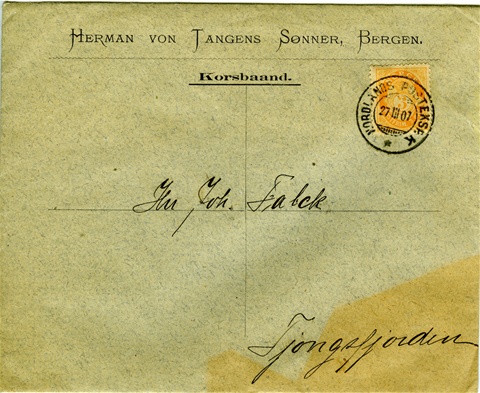 HERMAN VON TANGENS SØNNER, BERGEN.
Korsbaand.
NORDLANDS POSTEKSP. K
27 III 07
Hr Joh. Falck
Tjongsfjorden